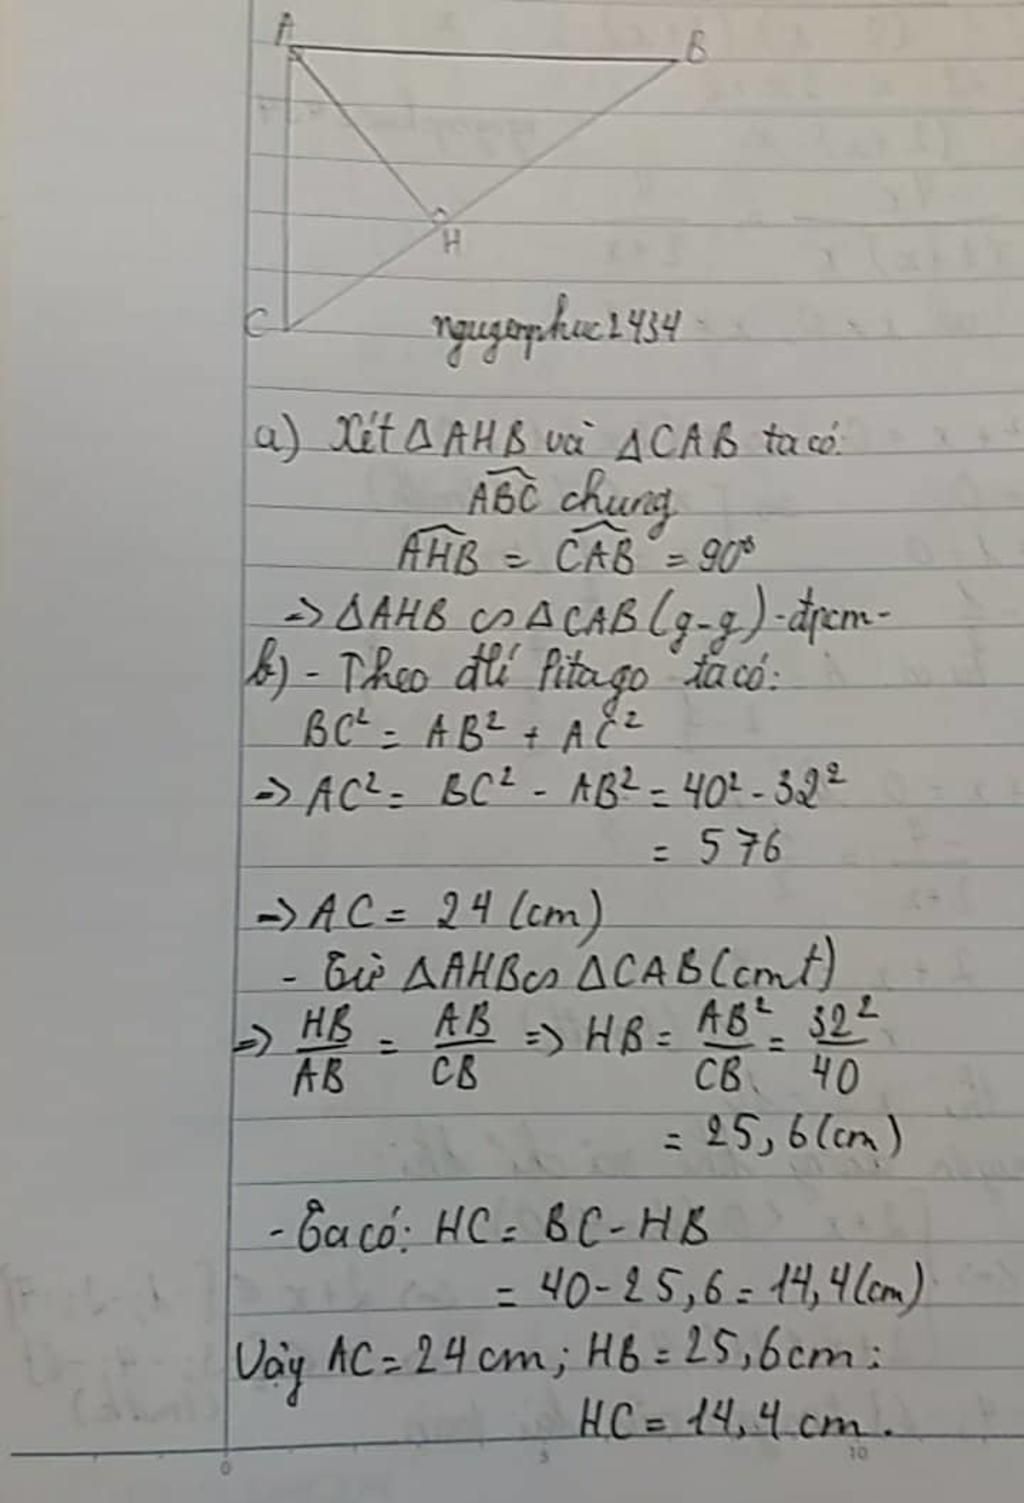 A
B
H
C
nguyenphuc2434
a) Xét Δ AHB và Δ CAB ta có:
ABC chung
AHB = CAB = 90°
=> Δ AHB ∽ Δ CAB (g-g) - đpcm -
b) - Theo đlí Pitago ta có:
BC² = AB² + AC²
=> AC² = BC² - AB² = 40² - 32²
= 576
=> AC = 24 (cm)
- Từ Δ AHB ∽ Δ CAB (cmt)
=> HB/AB = AB/CB => HB = AB²/CB = 32²/40
= 25,6 (cm)
- Ta có: HC = BC - HB
= 40 - 25,6 = 14,4 (cm)
Vậy AC = 24 cm; HB = 25,6 cm;
HC = 14,4 cm.
0 5 10